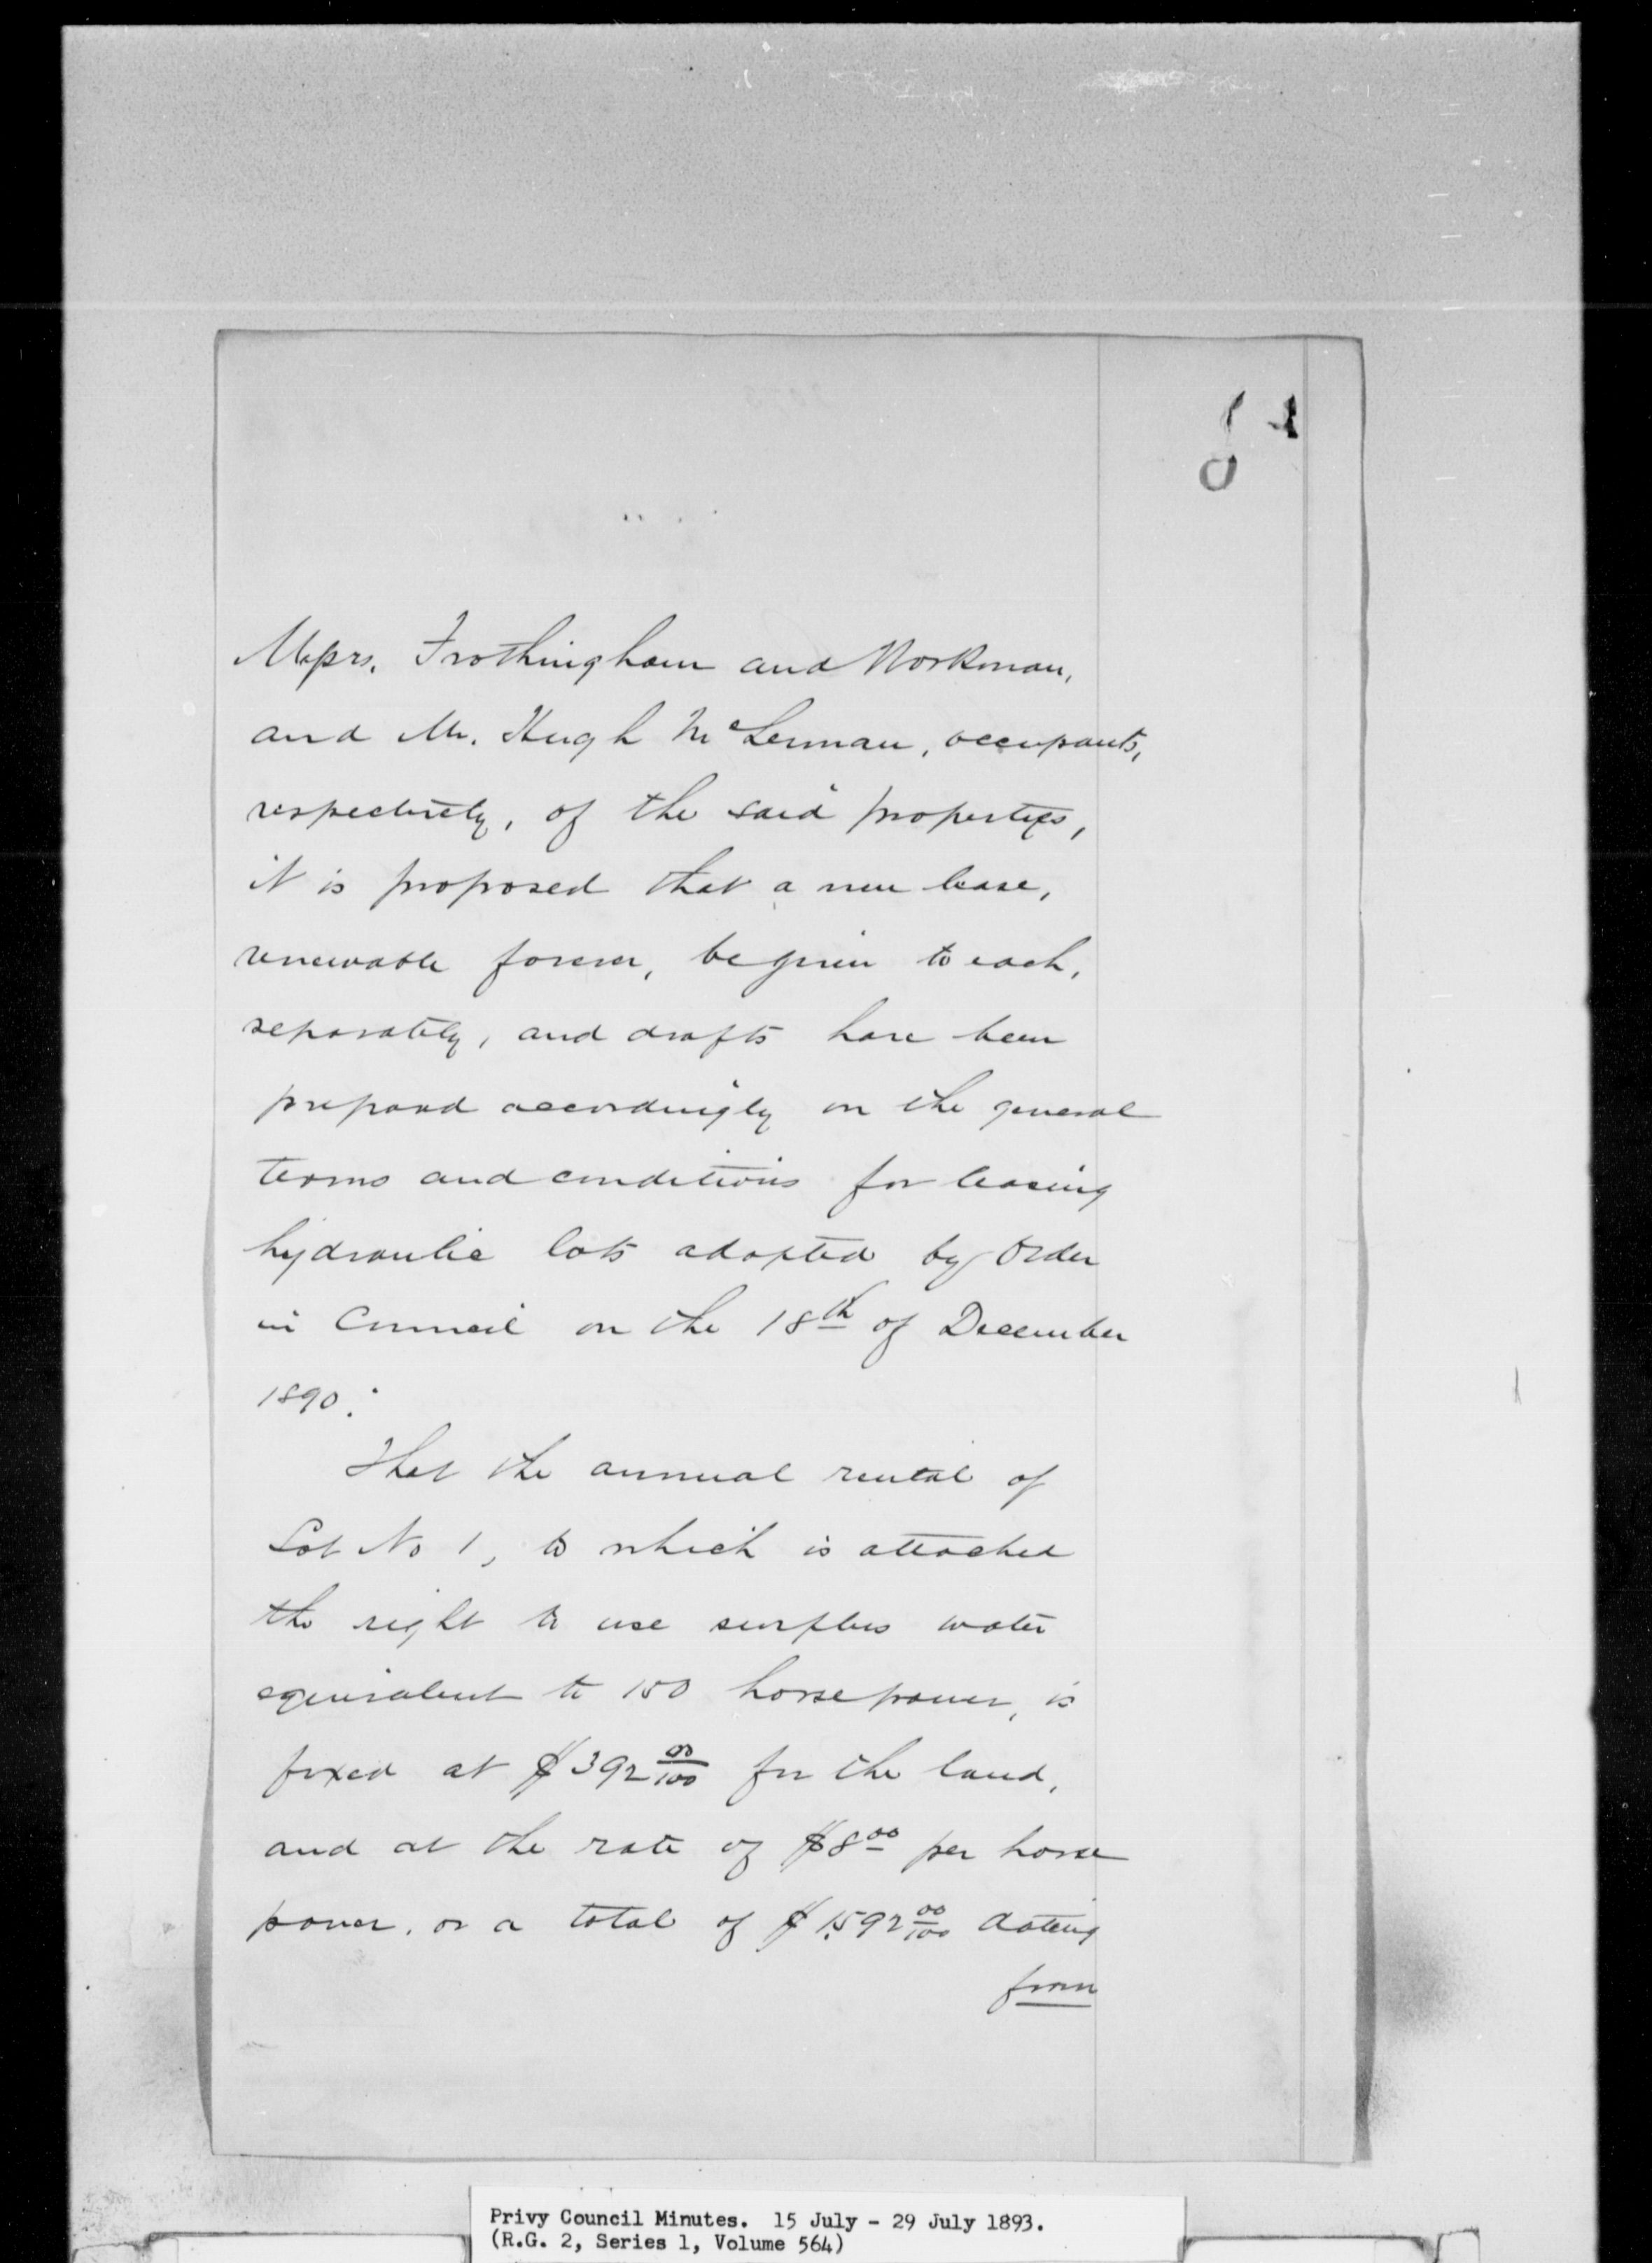 Messrs. Frothingham and Workman,
and Mr. Hugh McLennan, occupants,
respectively, of the said properties,
it is proposed that a new lease,
renewable forever, be given to each,
separately, and drafts have been
prepared accordingly on the general
terms and conditions for leasing
hydraulic lots adopted by Order
in Council on the 18th of December
1890.
That the annual rental of
Lot No 1, to which is attached
the right to use surplus water
equivalent to 150 horsepower, is
fixed at $392 00/100 for the land,
and at the rate of $8 00 per horse
power, or a total of $1592 00/100 dating
from
Privy Council Minutes. 15 July - 29 July 1893.
(R.G. 2, Series 1, Volume 564)